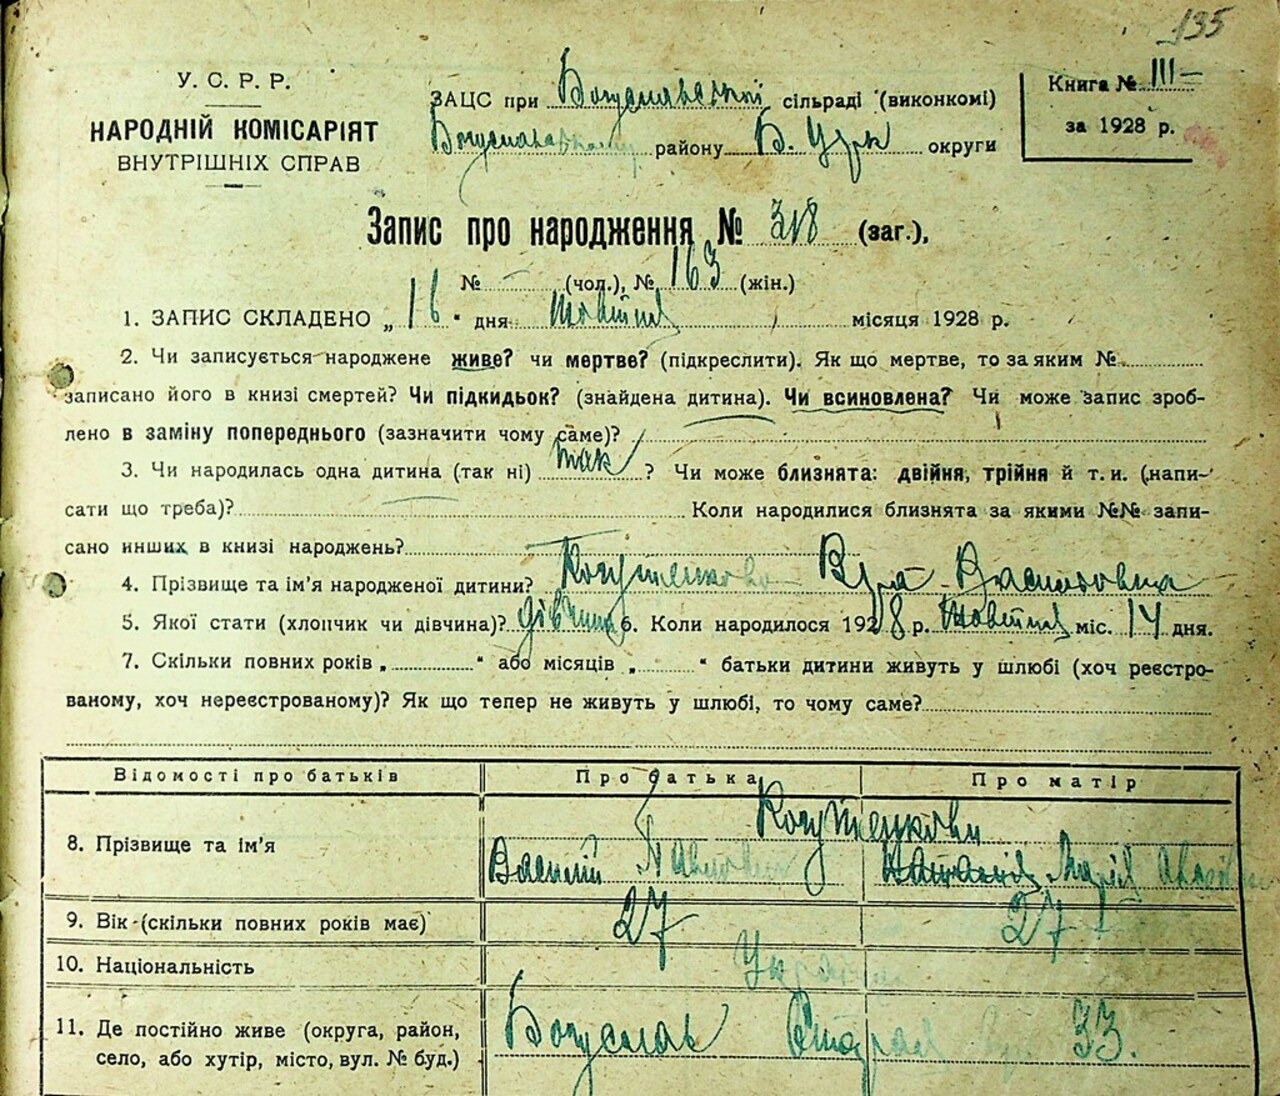 135
У. С. Р. Р.
НАРОДНІЙ КОМІСАРІЯТ
ВНУТРІШНІХ СПРАВ
ЗАЦС при Богуславській сільраді (виконкомі)
Богуславському району Б. Церк округи
Книга № III-
за 1928 р.
Запис про народження № 318 (заг.),
№ - (чол.), № 163 (жін.)
1. ЗАПИС СКЛАДЕНО „ 16 “ дня Жовтня місяця 1928 р.
2. Чи записується народжене живе? чи мертве? (підкреслити). Як що мертве, то за яким №
записано його в книзі смертей? Чи підкидьок? (знайдена дитина). Чи всиновлена? Чи може запис зроб-
лено в заміну попереднього (зазначити чому саме)?
3. Чи народилась одна дитина (так ні) так ? Чи може близнята: двійня, трійня й т. и. (напи-
сати що треба)? Коли народилися близнята за якими №№ запи-
сано инших в книзі народжень?
4. Прізвище та ім'я народженої дитини? Вера Васильовна
5. Якої стати (хлопчик чи дівчина)? дівчина 6. Коли народилося 1928 р. Жовтня міс. 14 дня.
7. Скільки повних років „ “ або місяців „ “ батьки дитини живуть у шлюбі (хоч реєстро-
ваному, хоч нереєстрованому)? Як що тепер не живуть у шлюбі, то чому саме?
Відомості про батьків Про батька Про матір
8. Прізвище та ім'я Василій Павлович Марія
9. Вік (скільки повних років має) 27 27
10. Національність
11. Де постійно живе (округа, район, Богуслав 33.
село, або хутір, місто, вул. № буд.)